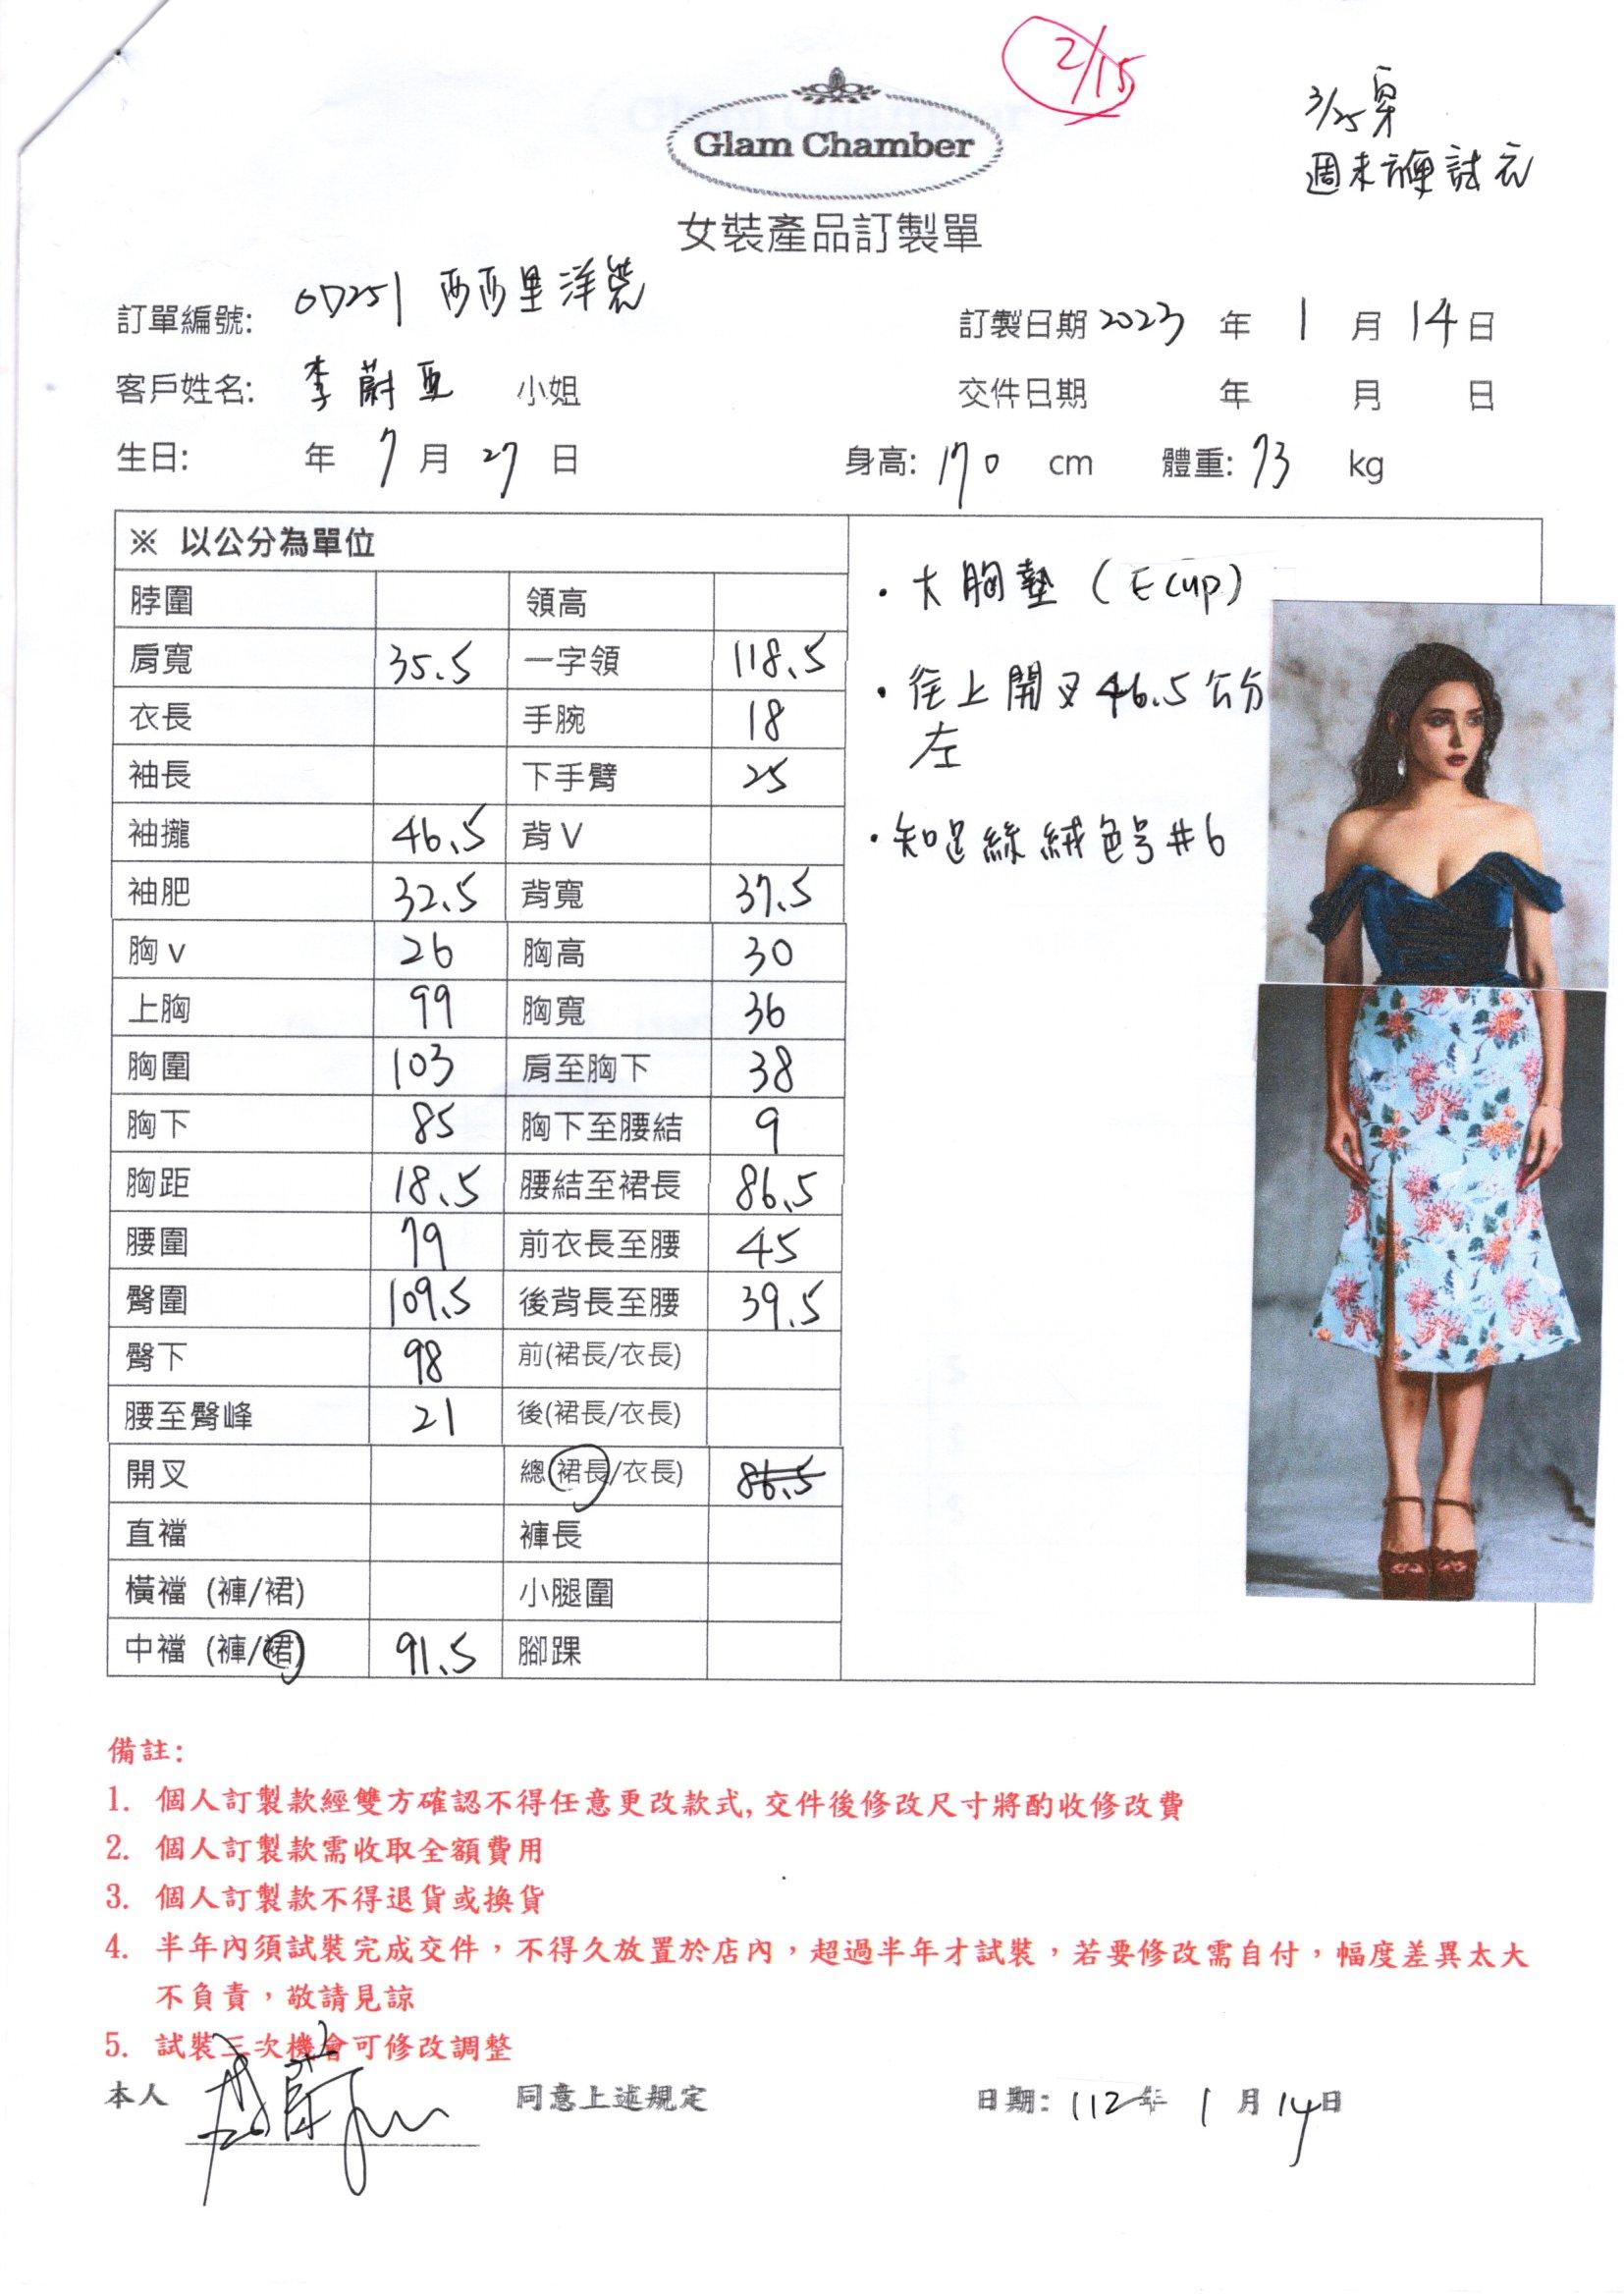 2/15
3/25 穿
週末方便試衣
Glam Chamber
女裝產品訂製單
訂單編號: OD251 西西里洋裝
訂製日期 2023 年 1 月 14 日
客戶姓名: 李蔚亞 小姐
交件日期 年 月 日
生日: 年 7 月 27 日 身高: 170 cm 體重: 73 kg
※ 以公分為單位
脖圍 領高
肩寬 35.5 一字領 118.5
衣長 手腕 18
袖長 下手臂 25
袖攏 46.5 背V
袖肥 32.5 背寬 37.5
胸v 26 胸高 30
上胸 99 胸寬 36
胸圍 103 肩至胸下 38
胸下 85 胸下至腰結 9
胸距 18.5 腰結至裙長 86.5
腰圍 79 前衣長至腰 45
臀圍 109.5 後背長至腰 39.5
臀下 98 前(裙長/衣長)
腰至臀峰 21 後(裙長/衣長)
開叉 總(裙長/衣長) 86.5
直襠 褲長
橫襠 (褲/裙) 小腿圍
中襠 (褲/裙) 91.5 腳踝
・大胸墊 (E cup)
・往上開叉 46.5 公分
左
・絲絨色号#6
備註:
1. 個人訂製款經雙方確認不得任意更改款式, 交件後修改尺寸將酌收修改費
2. 個人訂製款需收取全額費用
3. 個人訂製款不得退貨或換貨
4. 半年內須試裝完成交件，不得久放置於店內，超過半年才試裝，若要修改需自付，幅度差異太大
不負責，敬請見諒
5. 試裝三次機會可修改調整
本人 同意上述規定 日期: 112 年 1 月 14 日